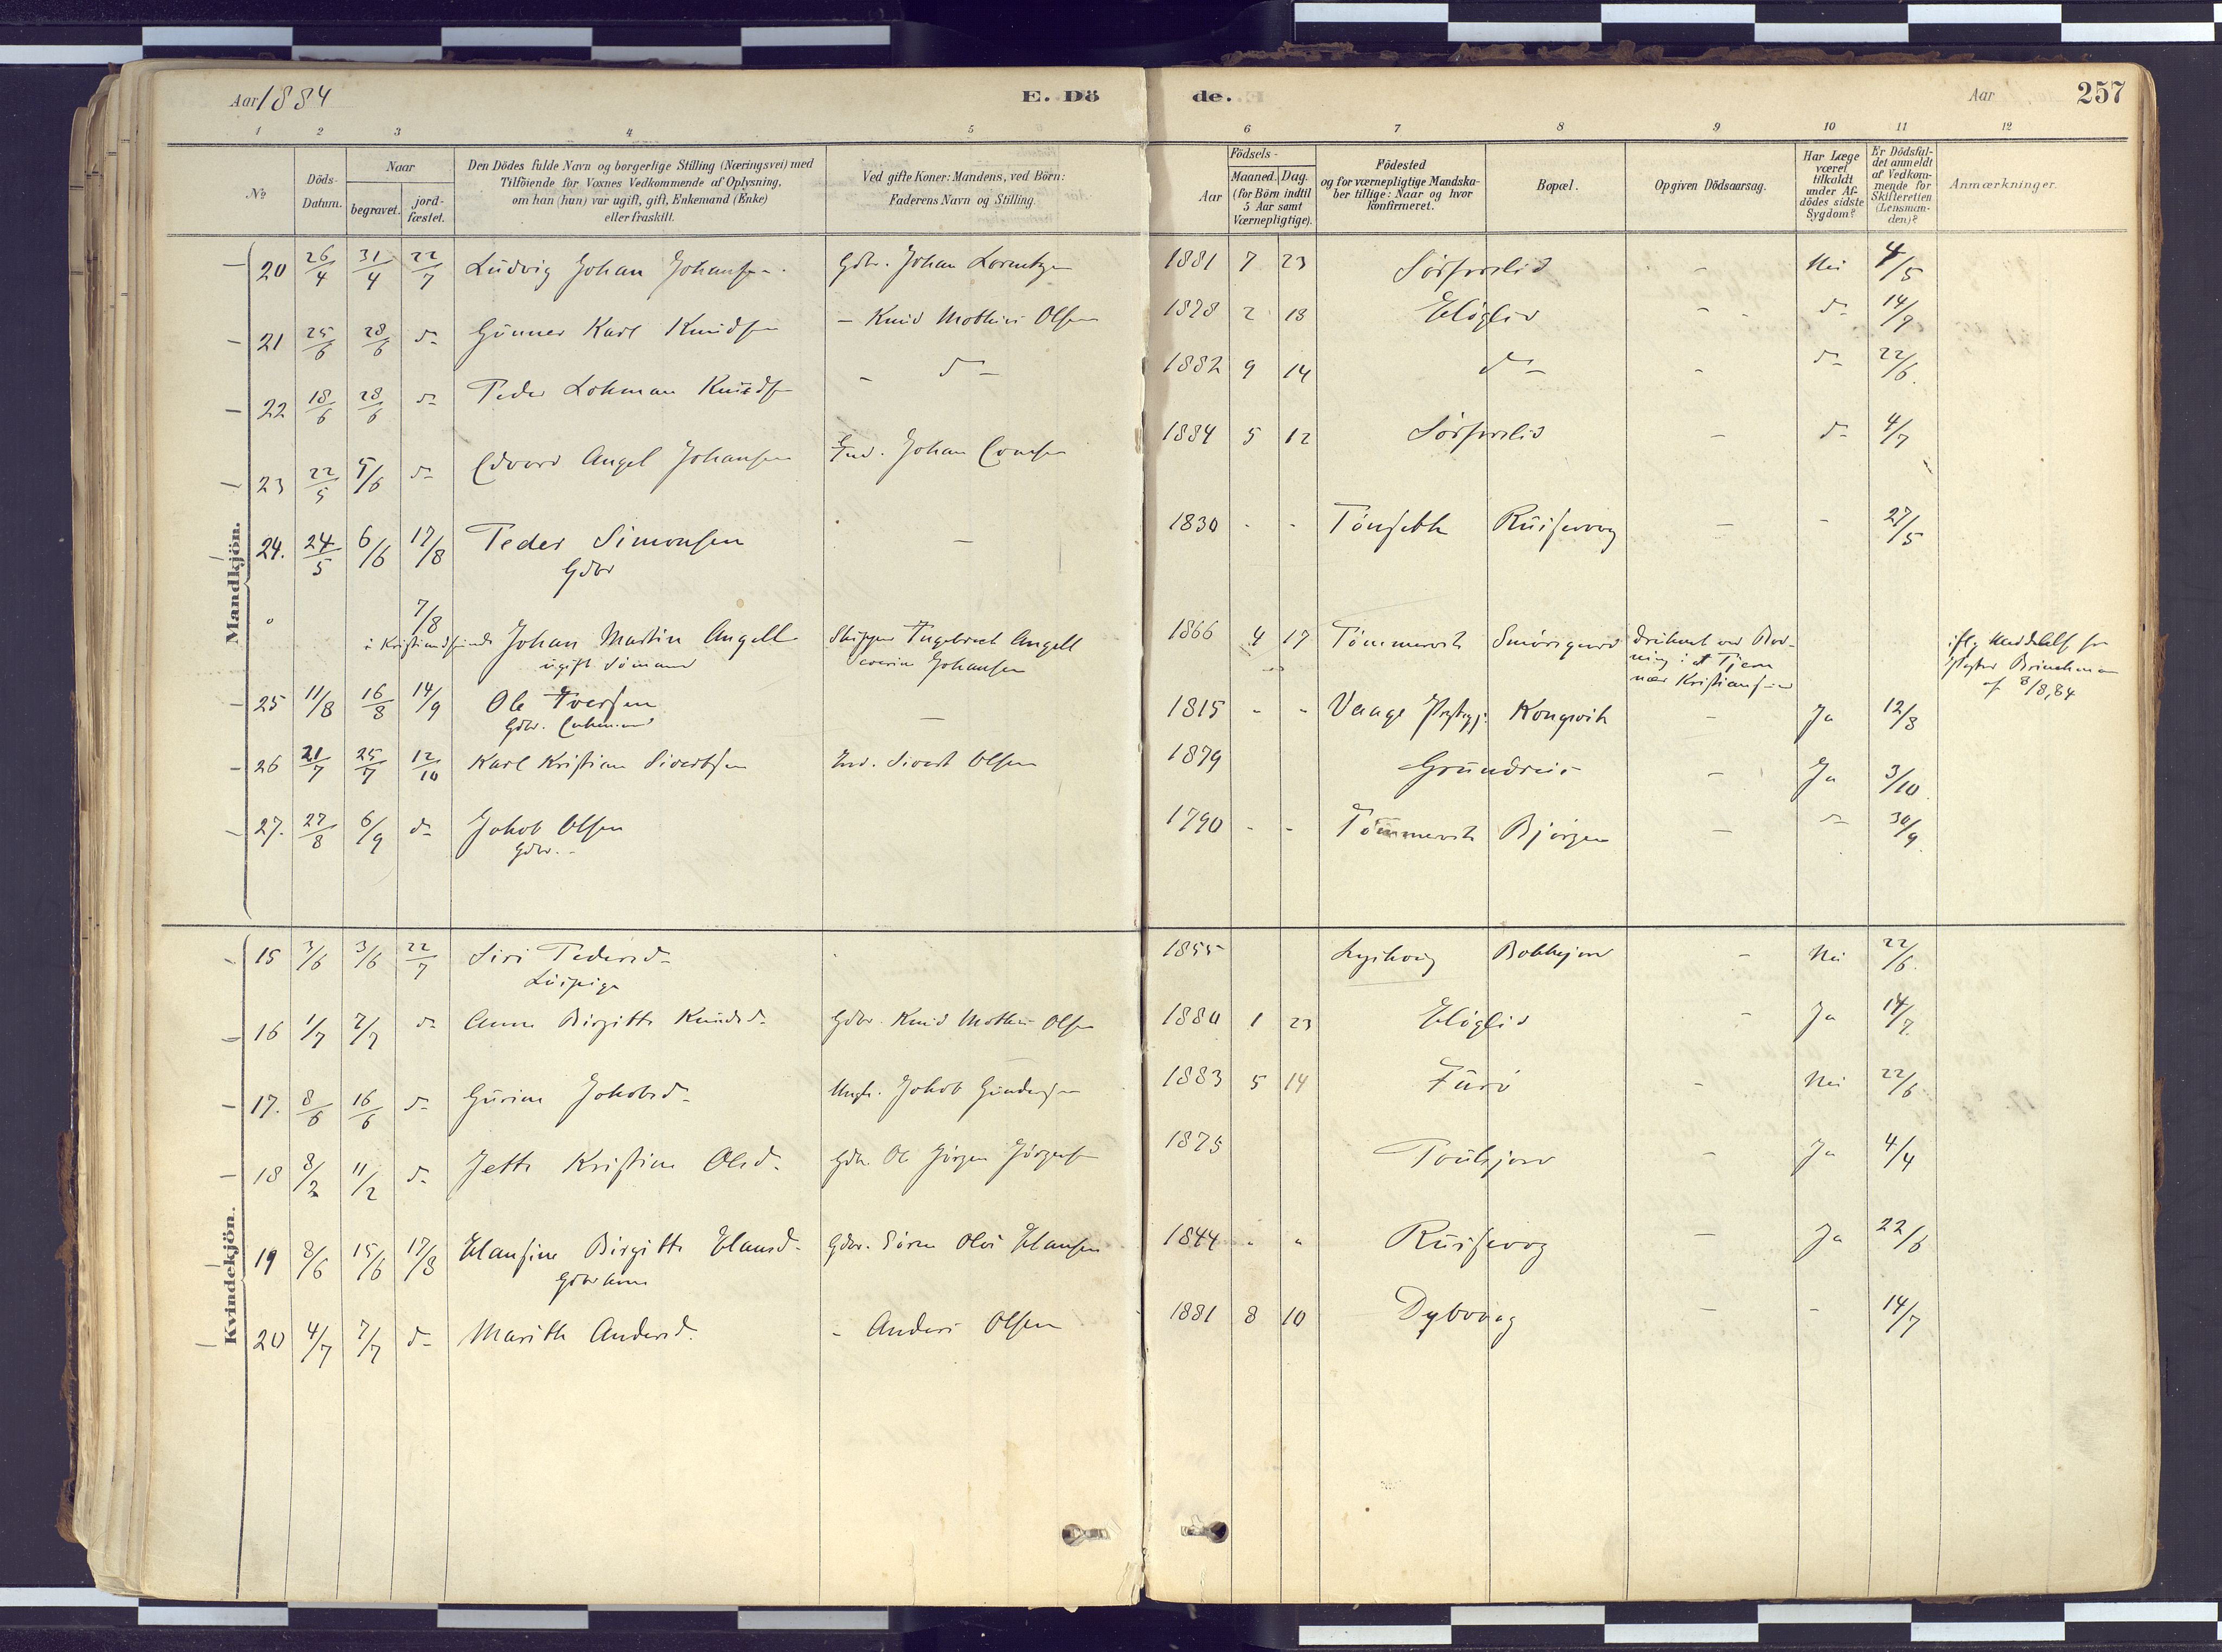 Aar 1884
E. Dö de.
Aar
257
1 2 3 4 5 6 7 8 9 10 11 12
No
Döds-Datum.
Naar
begravet.
jord-fæstet.
Den Dödes fulde Navn og borgerlige Stilling (Næringsvei) med
Tilföiende for Voxnes Vedkommende af Oplysning,
om han (hun) var ugift, gift, Enkemand (Enke)
eller fraskilt.
Ved gifte Koner: Mandens, ved Börn:
Faderens Navn og Stilling.
Födsels-
Aar
Maaned. Dag.
(for Börn indtil
5 Aar samt
Værnepligtige).
Födested
og for værnepligtige Mandska-
ber tillige: Naar og hvor
konfirmeret.
Bopæl.
Opgiven Dödsaarsag.
Har Læge
været
tilkaldt
under Af-
dödes sidste
Sygdom?
Er Dödsfal-
det anmeldt
af Vedkom-
mende for
Skifteretten
(Lensman-
den)?
Anmærkninger.
Mandkjön.
20 26/4 31/4 22/7 Ludvig Johan Johansen. Gdbr. Johan Lorentzen 1881 7 23 - Nei 4/5
21 25/6 28/6 do Gunner Karl Knudsen - Knud Mathias Olsen 1878 2 18 - do 14/9
22 18/6 28/6 do Peder Lohman Knudsen - do 1882 9 14 do - do 22/6.
23 22/5 5/6 do Edvard Angel Johansen Ind. Johan 1884 5 12 - do 4/7
24. 24/5 6/6 17/8 Peder Simonsen - 1830 - - Tönseth Ruisevaag - - 27/5
Gdbr
7/8
i Kristiansund Johan Martin Angell Skipper Ingebret Angell 1866 4 17 Tömmervik druknet ved Bad-
ugift Sömand Severin Johansen ning i et Tjern
nær Kristiansund
iflg Meddelelse fra
Brinchman
af 8/8, 84
25 11/8 16/8 14/9 Ole Iversen - 1815 - - Vaage Kongsvik - Ja 12/8
Gdbr. Enkemand
26 21/7 25/7 12/10 Karl Kristian Sivertsen Ind. Sivert Olsen 1879 - Ja 3/10
27. 27/8 6/9 do Jakob Olsen 1790 - - Tömmervik Bjørgen - do 30/9.
Gdbr.
Kvindekjön.
15 3/6 3/6 22/7 Siri Pedersd. 1855 - Nei 22/6.
16 1/7 7/7 do Anne Birgitte Knudsd. Gdbr. Knud Mathias Olsen 1880 1 23 - Ja 14/7.
17. 8/6 16/6 do Gurine Jakobsd. Ungk. Jakob Gundersen 1883 5 14 Furö - Nei 22/6
18 8/2 11/2 do Jette Kristine Olsd. Gdbr. Ole Jörgen Jörgensen 1875 - Ja 4/4
19 8/6 15/6 17/8 Hansine Birgitte Hansd. Gdbr. Sören Olai Hansen 1844 - - Ruisevaag - Ja 22/6
Gdbrkone
20 4/7 7/7 do Marith Andersd. - Anders Olsen 1881 8 10 Dybvaag - - 14/7